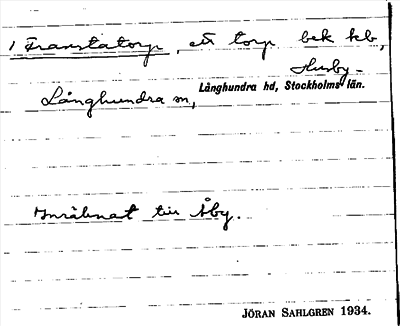 1 Franstatorp, ett torp bek kb,
Husby-
Långhundra hd, Stockholms län.
Långhundra sn,
Inräknat till Åby.
JÖRAN SAHLGREN 1934.